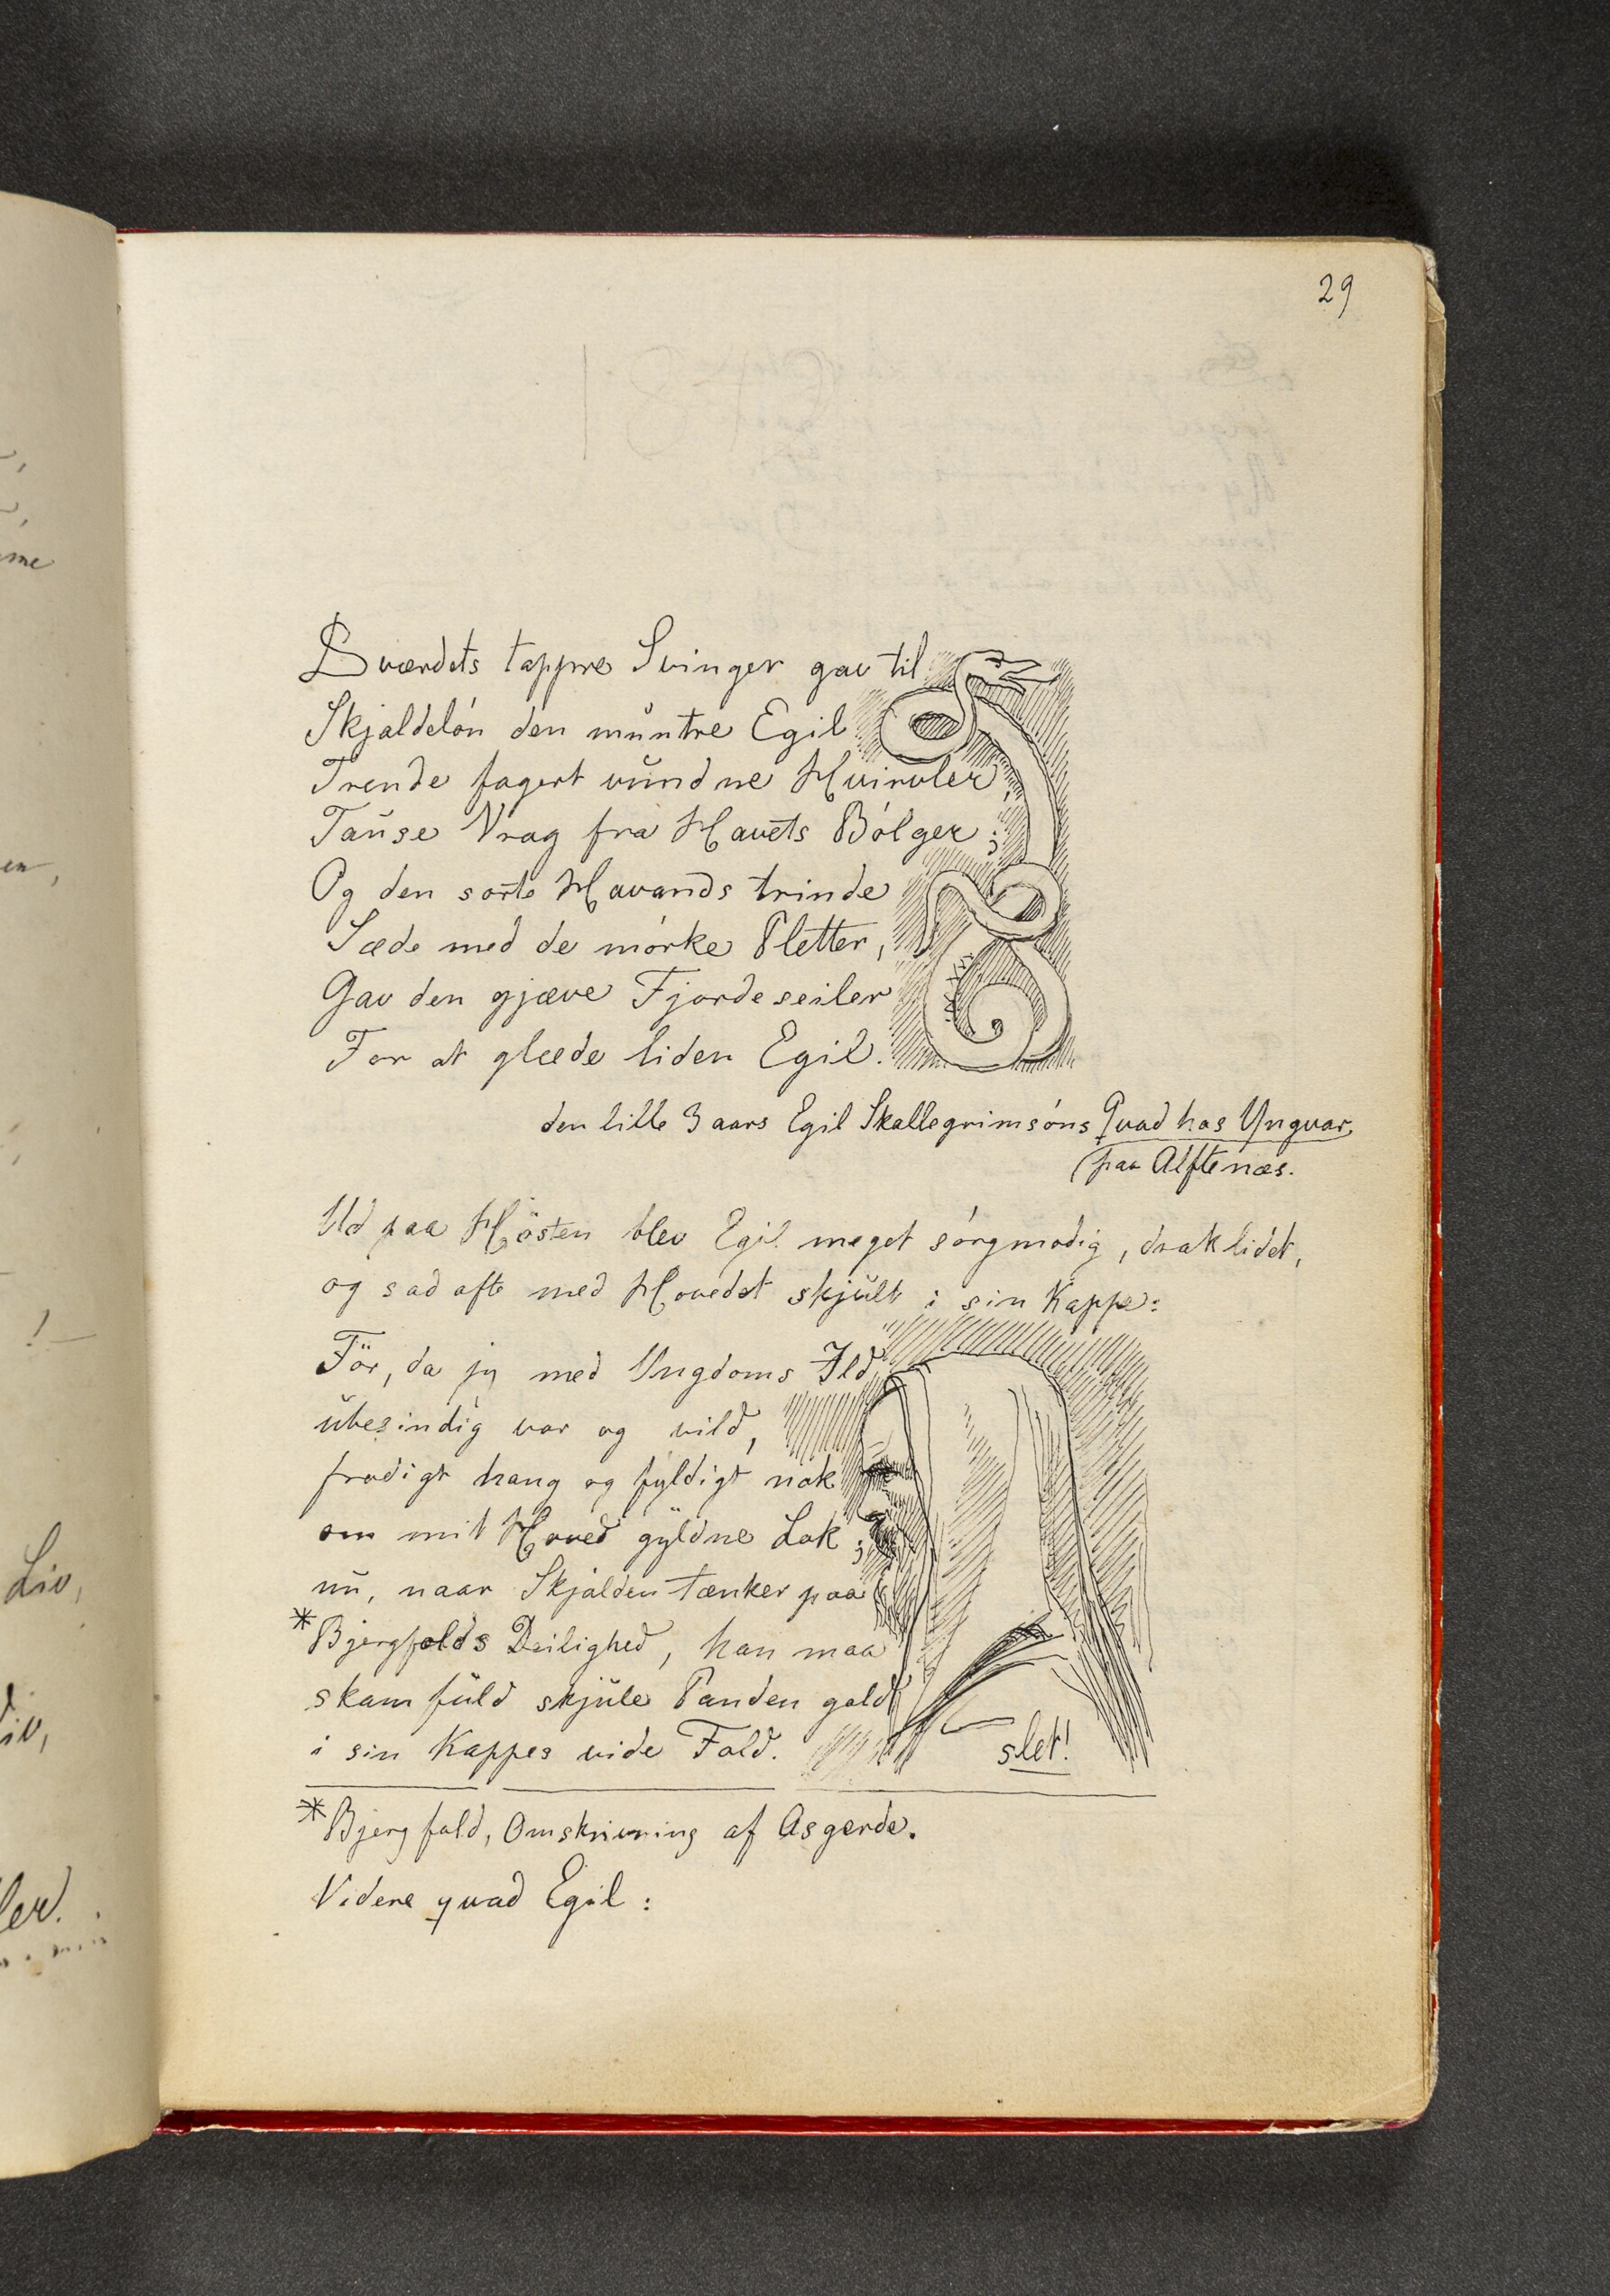 29
Sværdets tappre Svinger gav til
Skjaldelón den muntre Egil
Trende fagert vundne Hvirvler,
Tause Vrag fra Havets Bólger;
Og den sorte Havands trinde
Sæde med de mórke Pletter,
Gav den gjæve Fjordeseiler
For at glæde liden Egil.
den lille 3 aars Egil Skallegrimsóns Qvad hos Yngvar
paa Alftenæs.
Ud paa Hösten blev Egil meget sórgmodig, drak lidet,
og sad ofte med Hovedet skjult i sin Kappe:
För, da jeg med Ungdoms Ild
ubesindig var og vild,
frodigt hang og fyldigt nok
om mit Hoved gyldne Lok;
nu, naar Skjalden tænker paa
*Bjergfolds Deilighed, han maa
skamfuld skjule Panden gold
i sin Kappes vide Fold.
slet!
*Bjergfold, Omskrivning af Asgerde.
Videre qvad Egil:
me
en,
!—
Liv,
iv,
ler.